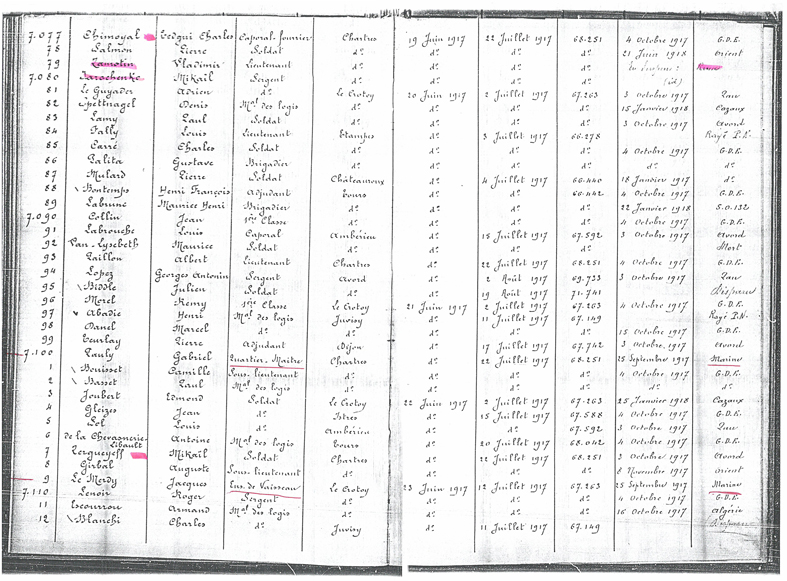 7.077 Chimoyal Tedgui Charles Caporal-fourrier Chartres 19 Juin 1917 22 Juillet 1917 68.251 4 Octobre 1917 G.D.E.
78 Salmon Pierre Soldat d° d° d° d° 21 Juin 1918 Orient
79 Zamotin Vladimir Lieutenant d° d° d° d°
7.080 Jarochenko Mikaïl Sergent d° d° d° d°
81 Le Guyader Adrien d° Le Crotoy 20 Juin 1917 2 Juillet 1917 67.263 3 Octobre 1917 Pau
82 Spettnagel Denis Mal des logis d° d° d° d° 15 Janvier 1918 Cazaux
83 Lamy Paul Soldat d° d° d° d° 3 Octobre 1917 Avord
84 Fally Louis Lieutenant Etampes d° 3 Juillet 1917 66.278 Rayé P.N.
85 Carré Charles Soldat d° d° d° d° 4 Octobre 1917 G.D.E.
86 Palita Gustave Brigadier d° d° d° d° d° d°
87 Mulard Pierre Soldat Châteauroux d° 4 Juillet 1917 66.440 18 Janvier 1917 d°
88 Bontemps Henri François Adjudant Tours d° d° 66.442 4 Octobre 1917 G.D.E.
89 Labuine Maurice Henri Brigadier d° d° d° d° 22 Janvier 1918 S.O.132
7.090 Collin Jean 1ère Classe d° d° d° d° 4 Octobre 1917 G.D.E.
91 Labrouche Louis Caporal Ambérieu d° 15 Juillet 1917 67.592 3 Octobre 1917 Avord
92 Van-Lysebeth Maurice Soldat d° d° d° d° Mort
93 Paillon Albert Lieutenant Chartres d° 22 Juillet 1917 68.251 4 Octobre 1917 G.D.E.
94 Lopez Georges Antonin Sergent Avord d° 2 Août 1917 69.733 3 Octobre 1917 Pau
95 Biddle Julien Soldat d° d° 19 Août 1917 71.741 Disparu
96 Morel Remy 1ère Classe Le Crotoy 21 Juin 1917 2 Juillet 1917 67.263 4 Octobre 1917 G.D.E.
97 Abadie Henri Mal des logis Juvisy d° 11 Juillet 1917 67.149 Rayé P.N.
98 Danel Marcel d° d° d° d° d° 15 Octobre 1917 G.D.E.
99 Teurlay Pierre Adjudant Dijon d° 17 Juillet 1917 67.742 3 Octobre 1917 Avord
7.100 Pauly Gabriel Quartier-Maitre Chartres d° 22 Juillet 1917 68.251 25 Septembre 1917 Marine
1 Bouisset Camille Sous-lieutenant d° d° d° d° 4 Octobre 1917 G.D.E.
2 Basset Paul Mal des logis d° d° d° d° d° d°
3 Joubert Edmond Soldat Le Crotoy 22 Juin 1917 2 Juillet 1917 67.263 25 Janvier 1918 Cazaux
4 Gleizes Jean d° Istres d° 15 Juillet 1917 67.588 4 Octobre 1917 G.D.E.
5 Sol Louis d° Ambérieu d° d° 67.592 3 Octobre 1917 Pau
6 de la Chevasnerie-Libault Antoine Mal des logis Tours d° 20 Juillet 1917 68.042 4 Octobre 1917 G.D.E.
7 Zergueyeff Mikaïl Soldat Chartres d° 22 Juillet 1917 68.251 3 Octobre 1917 Avord
8 Girbal Auguste Sous-lieutenant d° d° d° d° 8 Novembre 1917 Orient
9 Le Merdy Jacques Ens. de Vaisseau Le Crotoy 23 Juin 1917 12 Juillet 1917 67.263 25 Septembre 1917 Marine
7.110 Lenoir Roger Sergent d° d° d° d° 4 Octobre 1917 G.D.E.
11 Escourrou Armand Mal des logis d° d° d° d° 16 Octobre 1917 Algérie
12 Blanchi Charles d° Juvisy d° 11 Juillet 1917 67.149 Disparu